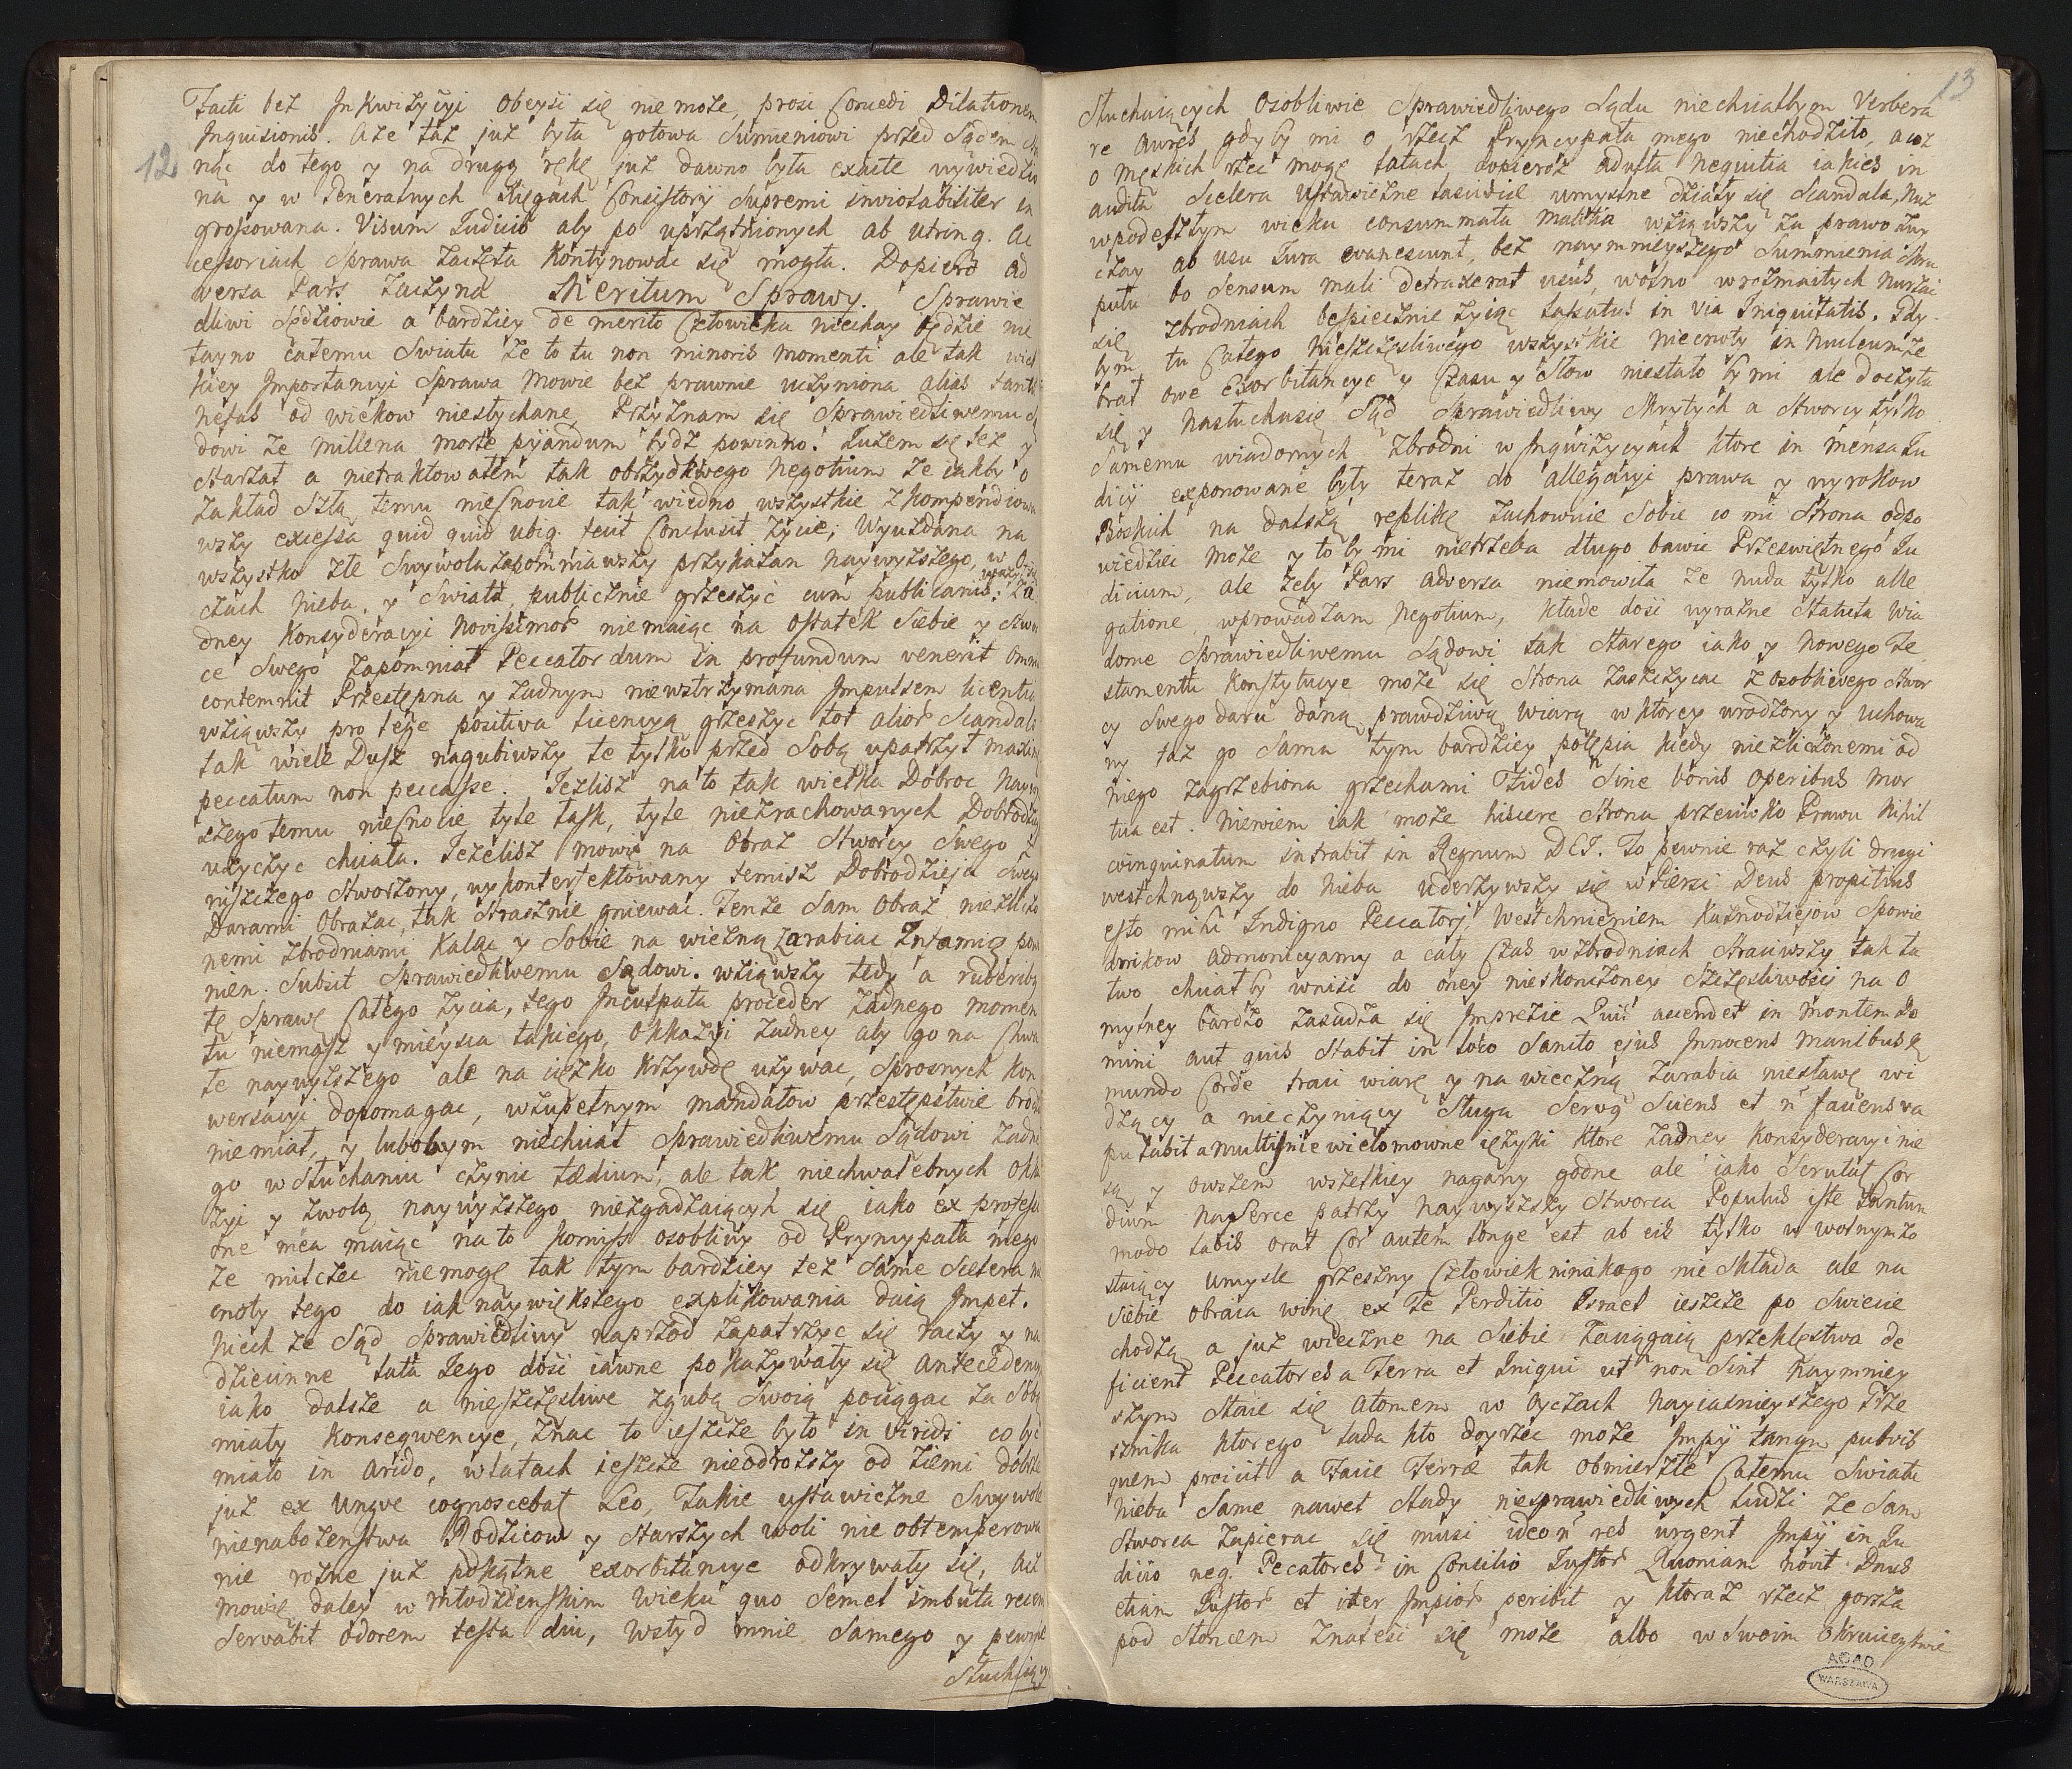 12
Facti bez Jnkwizycyi obeysć się nie może, prosi Concedi Dilationem
Jnquisitionis. Aże taż już była gotowa Sumieniowi przed Sądem
nąc do tego y na drugą rękę już dawno była exacte wywiedzio
na y w Generalnych Xięgach Consistorij Supremi inviolabiliter in
grossowana. Visum Iudicio aby po uprzątnionych ab utrinq. Ac
cessoriach Sprawa zaczęta kontynowac się mogła. Dopiero Ad
wersa Pars zaczyna Meritum Sprawy. Sprawie
dliwi Sędziowie a bardziey de merito Człowieka niechay będzie nie
tayno całemu Swiatu że to tu non minoris momenti ale tak wiel
kiey Jmportancyi Sprawa mowie bez prawnie uczyniona alias
nefas od wiekow niesłychane, Przyznam się Sprawiedliwemu Są
dowi że millena morte pijandum bydz powinno. Iużem się też y
starzał a nietraktowałem tak obrzydliwego negotium że iakby o
zakład szła temu nieCnocie tak wiedno wszystkie zkompendiowa
wszy excessa quid quid ubiq. fecit Conclusit życie; Wyuzdana na
wszystko złe Swywola zapomniawszy przykazan naywyższego, w O
czach nieba, y Swiata publicznie grzeszyć cum publicanis; za
dney konsyderacyi novissimor niemaiąc na ostatek Siebie y Stwor
ce Swego zapomniał Peccator dum in profundum venerit omnia
contemnit Przestępna y żadnym niewstrzymana Jmpulsem licentia
wziąwszy pro lege positiva licencyą grzeszyc tot alior Scandala
tak wiele Dusz nagubiwszy te tylko przed Sobą upatrzył maxim
peccatum non peccasse. Iezlisz na to tak wielka Dobroc Nayw
szego temu nieCnocie tyle łask, tyle niezrachowanych Dobrodzi
użyczyc chciała. Ieżelisz mowię na obraz Stworcy Swego z
niszczego stworzony, wykonterfektowany temisz Dobrodzieja Swego
Darami Obrażac, tak strasznie gniewac. Tenże Sam obraz niezliczo
nemi zbrodniami kalac y Sobie na wieczną zarabiac Jnfamię powi
nien. Subsit Sprawiedliwemu Sądowi. wziąwszy tedy a ruderibus
tę Sprawę Całego życia, tego Jnculpata proceder żadnego momen
tu niemasz y mieysca takiego, okkazyi żadney aby go na Chwa
łę naywyższego ale na ciężko krzywdę używac, Sprosnych kon
wersacyi dopomagac, wzupełnym mandatow przestępstwie brodzic
niemiał, y lubobym niechciał Sprawiedliwemu Sądowi żadne
go w słuchaniu czynic tædium, ale tak niechwalebnych okka
zyi y zwolą naywyższego niezgadzaiących się iako ex professi
one mea maiąc na to komiss osobliwy od Pryncypała mego
że milczec niemogę tak tym bardziey też Same Scelera nie
cnoty tego do iak naywiększego explikowania daią Jmpet.
Niech że Sąd Sprawiedliwy naprzod zapatrzyc się raczy y na
dziecinne lata Iego dosć iawne pokazywały się antecedency
iako dalsze a nieszczęsliwe zgubą Swoią pociągac za Sobą
miały konsequencye, znac to ieszcze było in viridi co być
miało in arido, w latach ieszcze nieodrosszy od ziemi dobrze
już ex ungve cognoscebat Leo, Takie ustawiczne Swywole
nienabożenstwa Rodzicow y Starszych woli nie obtemperowa
nie rożne już pokątne exorbitancye odkrywały się, Acz
mowię daley w młodzienskim wieku quo Semel imbuta recens
Servabit odorem testa diu, wstyd mnie Samego y pewnie
Słuchiący
13
Słuchaiących osobliwie Sprawiedliwego Sądu niechciałbym Verbera
re Aures gdyby mi o rzecz Pryncypała mego niechodziło, acoz
o męskich rzec mogę latach dopieroż adulta nequitia iakies in
audita Scelera ustawiczne umyslne działy się Scandala, nuż
wpodeszłym wieku consummata malitia wziąwszy za prawo
czay ab usu Iura evanescunt, bez naymnieyszego Summienia Skru
pułu bo Sensum mali detraxerat usus, wolno wrozmaitych nurzac
się zbrodniach bespiecznie żyiąc lassatus in via Iniquitatis. Gdy
bym tu Całego nieszczęsliwego wszystkie niecnoty in nucleum ze
brał owe Exorbitancye y Czasu y Słow niestało by mi ale doczyta
się y nasłucha się Sąd Sprawiedliwy Skrytych a Stworcy tylko
Samemu wiadomych zbrodni w Jnqwizycyach ktore in mensa Iu
dicij exponowane były teraz do allegacyi prawa y wyrokow
Boskich na dalszą replikę zachownie Sobie co mi Strona odpo
wiedziec może y to by mi nietrzeba długo bawic Przeswiętnego Iu
dicium, ale żeby Pars adversa niemowiła że nuda tylko alle
gatione wprowadzam negotium, kładę dosć wyrazne Statuta wia
dome Sprawiedliwemu Sądowi tak starego iako y nowego Te
stamentu konstytucye może się Strona zaszczycac z osobliwego Stwor
cy Swego daru daną prawdziwą wiarą w ktorey urodzony y uchowa
ny taż go Sama tym bardziey potępia kiedy niezliczonemi od
niego zagrzebiona grzechami Fides Sine bonis operibus mor
tua est. Niewiem iak może hiscere Strona przeciwko Prawu Nihil
coinquinatum intrabit in Regnum DEI. To pewnie raz czyli drugi
westchnąwszy do nieba uderzywszy się w Piersi Deus propitius
esto mihi Indigno Peccatori, Westchnieniem kaznodziejow Spowie
dnikow admonicyamy a cały Czas w zbrodniach strawiwszy tak ła
two chciał by wnisć do oney nieskonczoney Szczęsliwosci na o
mylney bardzo zasadza się Jmprezie Quis ascendet in montem Do
mini aut quis stabit in loco Sancto ejus Jnnocens manibus &
mundo Corde traci wiarę y na wieczną zarabia niesławę wi
dzący a nieczyniący Sługa Servq Sciens et ñ faciens va
pulabit a multis nie wielomowne ięzyki ktore żadney konsyderacyi nie
są y owszem wszelkiey nagany godne ale iako Scrutat Cor
dium na Serce patrzy naywyższy Stworca Populus iste tantum
modo labiis orat Cor autem longe est ab eis tylko w wolnym zo
staiący umysle grzeszny Człowiek ninakogo nie składa ale na
Siebie obraca winę ex Te Perditio Israel ieszcze po Swiecie
chodzą a już wieczne na Siebie zaciągaią przeklęstwa de
ficient Peccatores a Terra et Iniqui ut non Sint naymniey
szym staie się atomem w oyczach nayiasnieyszego Prze
sznika ktorego lada kto doyrzec może Jmpij tanqm pulvis
quem proiicit a Facie Terræ tak obmierzłe Całemu Swiatu
niebu Same nawet slady niesprawiedliwych ludzi że Sam
Stworca zapierac się musi ideo ñ res urgent Jmpij in Iu
dicio neq. Pecatores in Concilio Iustor Quoniam novit Dnus
etiam Iustor et iter Jmpior peribit y ktoraż rzecz gorsza
pod słoncem znalesc się może albo w Swoim okrucienstwie
AGAD
WARSZAWA